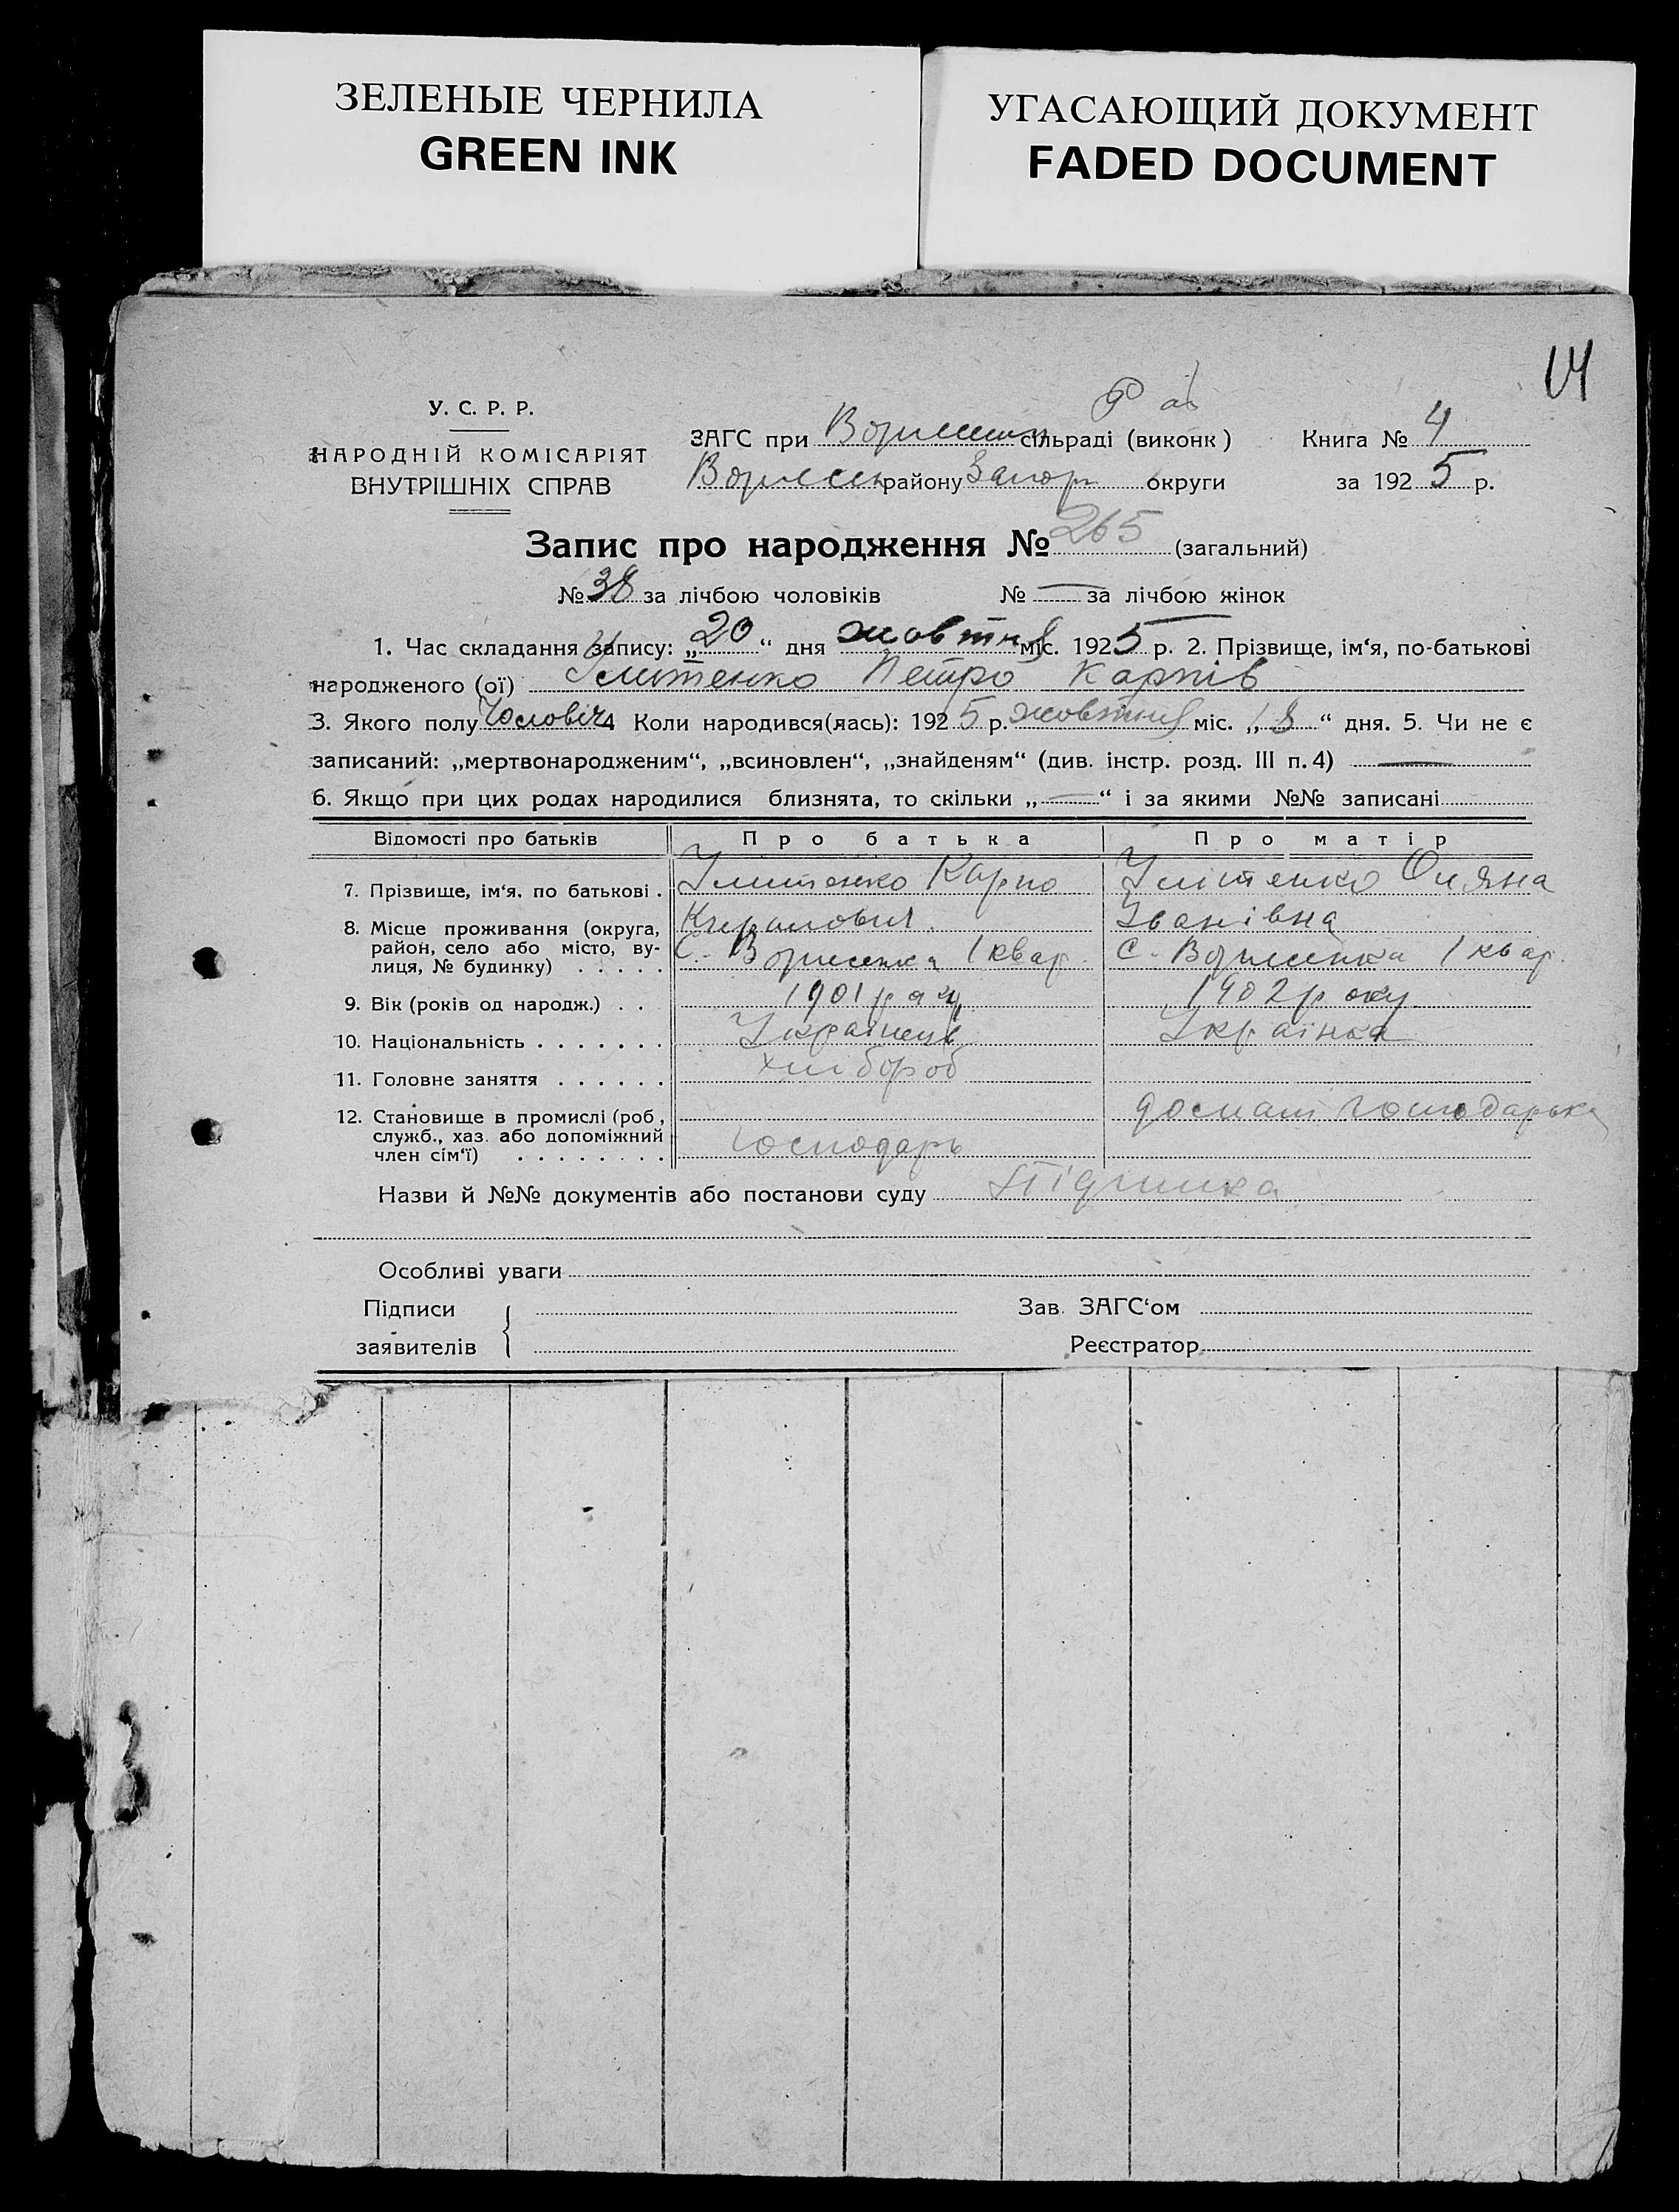 ЗЕЛЕНЫЕ ЧЕРНИЛА
GREEN INK
УГАСАЮЩИЙ ДОКУМЕНТ
FADED DOCUMENT
14
У. С. Р. Р.
НАРОДНІЙ КОМІСАРІЯТ
ВНУТРІШНІХ СПРАВ
ЗАГС при сільраді (виконк)
району Запор округи
Книга № 4
за 1925 р.
Запис про народження № 265 (загальний)
№ 38 за лічбою чоловіків № — за лічбою жінок
1. Час складання запису: „20“ дня жовтня міс. 1925 р. 2. Прізвище, ім‘я, по-батькові
народженого (ої) Петро Карпів
3. Якого полу Чоловіч 4 Коли народився(лась): 1925 р. жовтня міс. „18“ дня. 5. Чи не є
записаний: „мертвонародженим“, „всиновлен“, „знайденям“ (див. інстр. розд. III п. 4) —
6. Якщо при цих родах народилися близнята, то скільки „—“ і за якими №№ записані
Відомості про батьків Про батька Про матір
7. Прізвище, ім‘я, по батькові . Карпо Уляна
Іванівна
8. Місце проживання (округа, район, село або місто, вулиця, № будинку) . . . . . С. 1 квар. С. 1 квар.
9. Вік (років од народж.) . . 1901 року 1902 року
10. Національність . . . . . . . Українець Українка
11. Головне заняття . . . . . . хлібороб
12. Становище в промислі (роб, служб., хаз. або допоміжний член сім‘ї) . . . . . . . . господарь
Назви й №№ документів або постанови суду
Особливі уваги
Підписи
заявителів
Зав. ЗАГС‘ом
Реєстратор